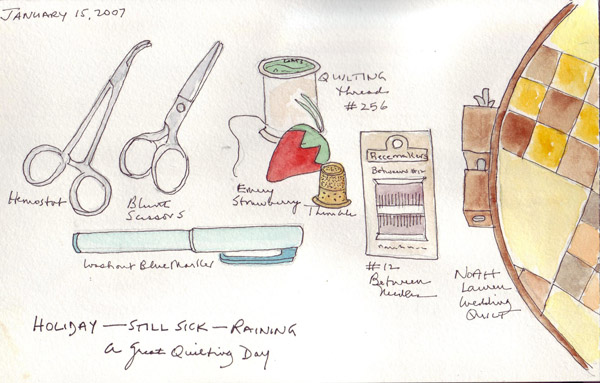 JANUARY 15, 2007
COATS
QUILTING
thread
#256
Hemostat
Blunt
Scissors
Emery
Strawberry
Thimble
Piecemakers
Betweens
Washout Blue Marker
#12
Between
Needles
NOAH
Lauren
Wedding
QUILT
HOLIDAY — STILL SICK — RAINING
A Great Quilting Day